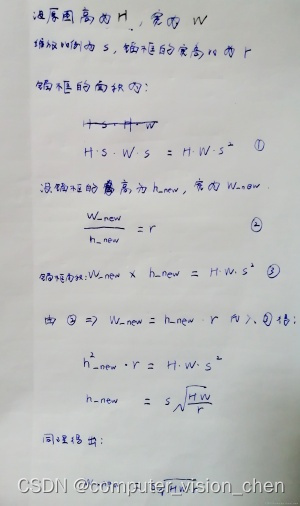 设原图高为 H, 宽为 W
缩放比例为 s, 锚框的宽高比为 r
锚框的面积为:
H·s·H·W
H·s·W·s = H·W·s² ①
设锚框的高为h_new, 宽为 W_new.
W_new / h_new = r ②
锚框面积: W_new × h_new = H·W·s² ③
由 ② => W_new = h_new · r 代入 得:
h²_new · r = H·W·s²
h_new = s √(HW / r)
同理得出:
CSDN @computer_vision_chen